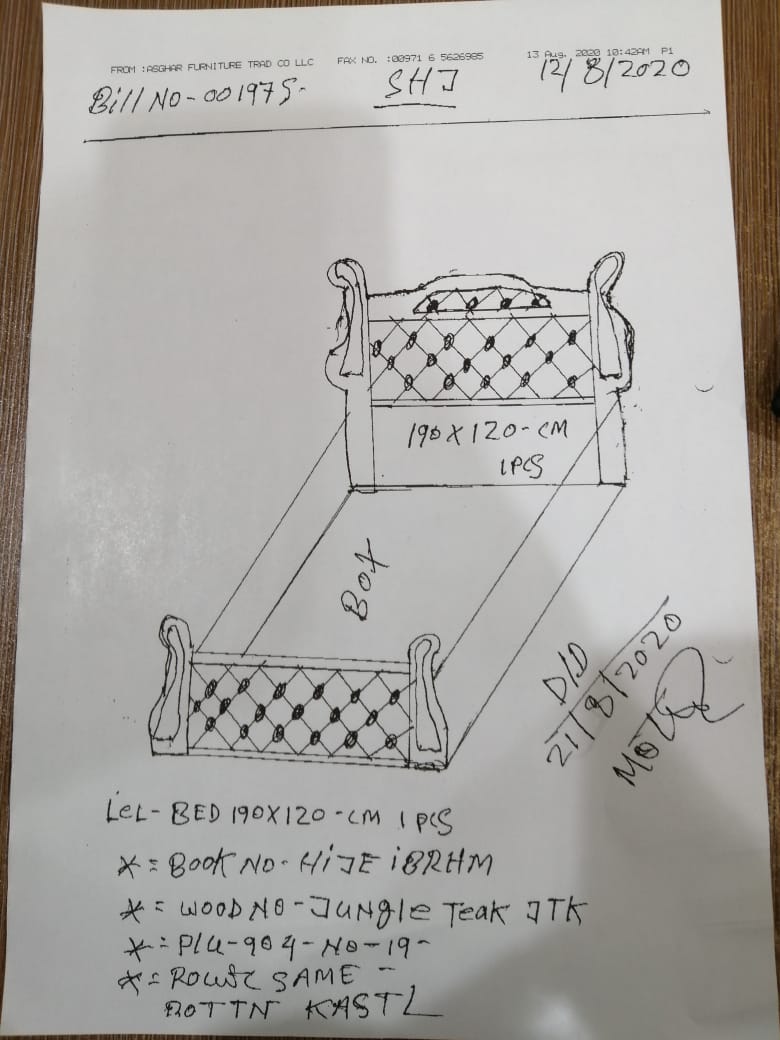 FROM :ASGHAR FURNITURE TRAD CO LLC FAX NO. :00971 6 5626985 13 Aug. 2020 10:42AM P1
Bill NO-001975- SHJ 12/8/2020
190X120-CM
1PCS
BOX
D/D
21/8/2020
LEL-BED 190X120-CM 1PCS
*=BOOK NO-HIJE iBRHM
*=WOOD NO-JUNGlE TEAK JTK
*=P/U-904-NO-19-
SAME -
BOTTN KASTL